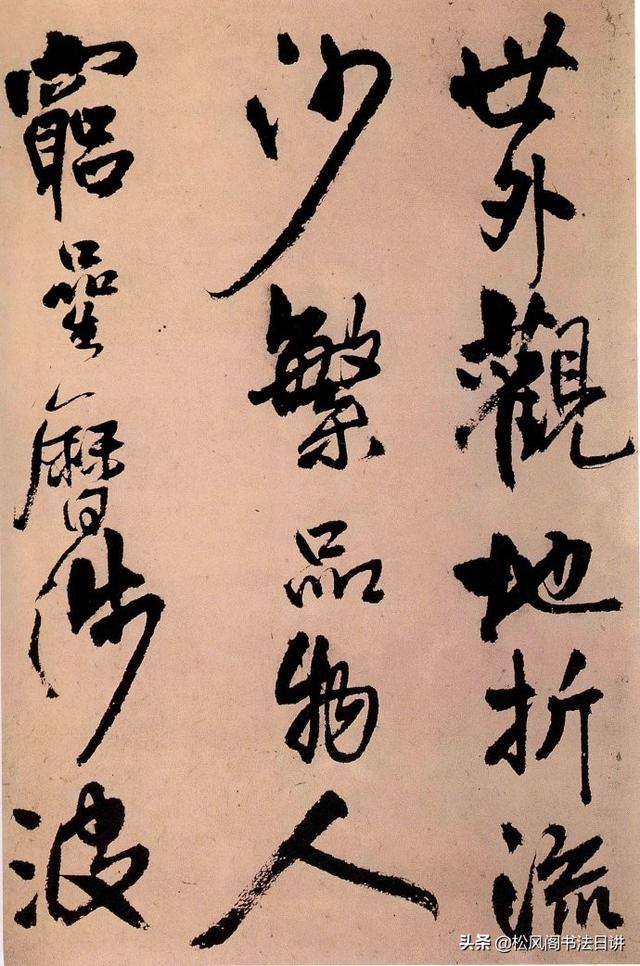 世外觀地折流
沙繁品物人
曐曆涉波
头条 @松风阁书法日讲